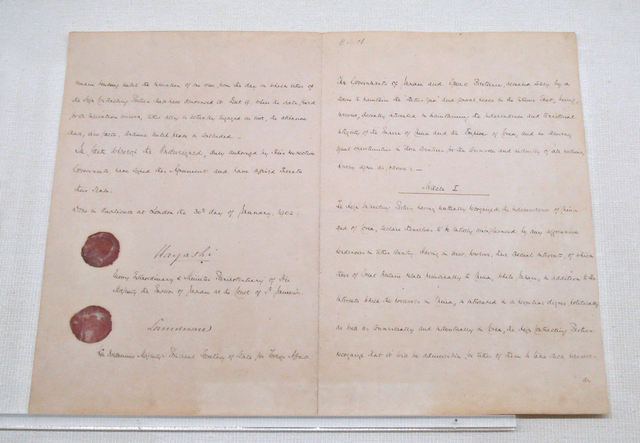 remain binding until the expiration of one year from the day on which either of
the High Contracting Parties shall have denounced it. But if, when the date fixed
for expiration arrives, either ally is actually engaged in war, the alliance
shall, ipso facto, continue until peace is concluded.
In faith whereof the Undersigned, duly authorized by their respective
Governments have signed this Agreement and have affixed thereto
their Seals.
Done in duplicate at London the 30th day of January, 1902.
Hayashi
Envoy Extraordinary & Minister Plenipotentiary of His
Majesty the Emperor of Japan at the Court of St. James's.
Lansdowne
His Britannic Majesty's Principal Secretary of State for Foreign Affairs
The Governments of Japan and Great Britain, actuated solely by a
desire to maintain the status quo and general peace in the extreme East, being,
moreover, specially interested in maintaining the independence and territorial
integrity of the Empire of China and the Empire of Corea, and in securing
equal opportunities in those countries for the commerce and industry of all nations,
hereby agree as follows:—
Article I.
The High Contracting Parties having mutually recognized the independence of China
and of Corea, declare themselves to be entirely uninfluenced by any aggressive
tendencies in either country. Having in view, however, their special interests, of which
those of Great Britain relate principally to China, while Japan, in addition to the
interests which she possesses in China, is interested in a peculiar degree politically
as well as commercially and industrially in Corea, the High Contracting Parties
recognize that it will be admissible for either of them to take such measures